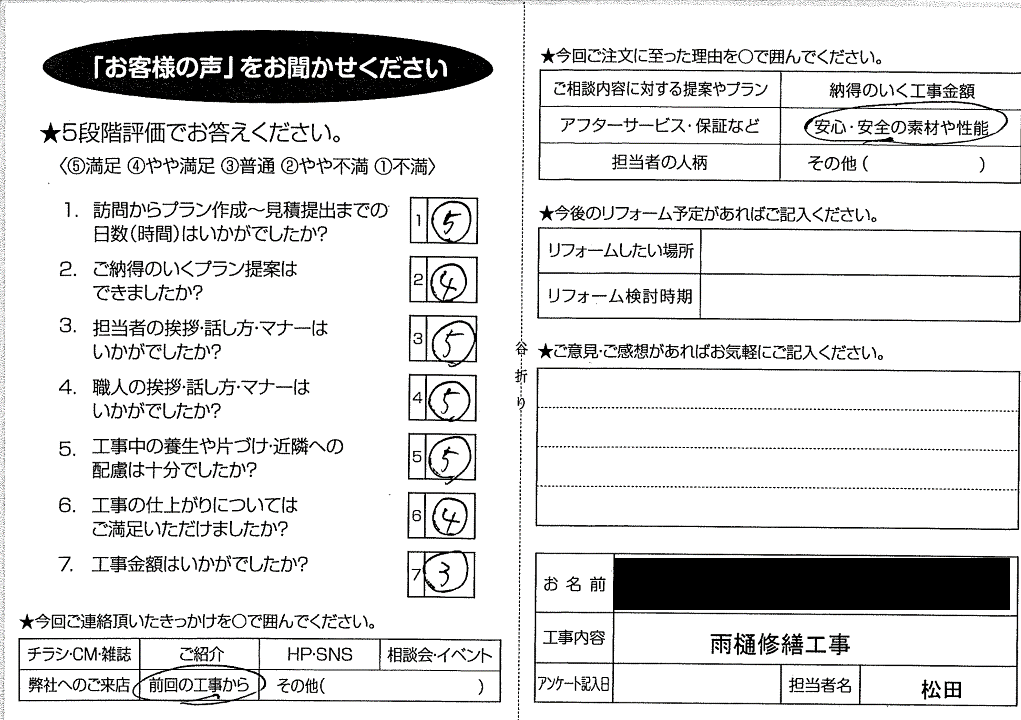 「お客様の声」をお聞かせください
★5段階評価でお答えください。
〈⑤満足 ④やや満足 ③普通 ②やや不満 ①不満〉
1. 訪問からプラン作成〜見積提出までの
日数(時間)はいかがでしたか?
1 ⑤
2. ご納得のいくプラン提案は
できましたか?
2 ④
3. 担当者の挨拶・話し方・マナーは
いかがでしたか?
3 ⑤
4. 職人の挨拶・話し方・マナーは
いかがでしたか?
4 ⑤
5. 工事中の養生や片づけ・近隣への
配慮は十分でしたか?
5 ⑤
6. 工事の仕上がりについては
ご満足いただけましたか?
6 ④
7. 工事金額はいかがでしたか?
7 ③
★今回ご連絡頂いたきっかけを○で囲んでください。
チラシ・CM・雑誌 ご紹介 HP・SNS 相談会・イベント
弊社へのご来店 前回の工事から その他( )
谷折り
★今回ご注文に至った理由を○で囲んでください。
ご相談内容に対する提案やプラン 納得のいく工事金額
アフターサービス・保証など 安心・安全の素材や性能
担当者の人柄 その他( )
★今後のリフォーム予定があればご記入ください。
リフォームしたい場所
リフォーム検討時期
★ご意見・ご感想があればお気軽にご記入ください。
お名前
工事内容 雨樋修繕工事
アンケート記入日 担当者名 松田